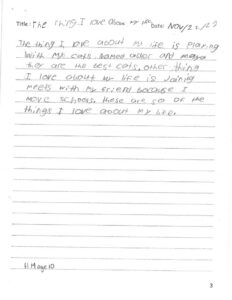 Title: The thing I love about my life Date: Nov/22/
The thing I love about my life is Playing
with my cats. Named castor and
they are the best cats. other thing
I love about my life is Joining
meets with my friend because I
move schools. these are so of the
things I love about my life.
age 10
3